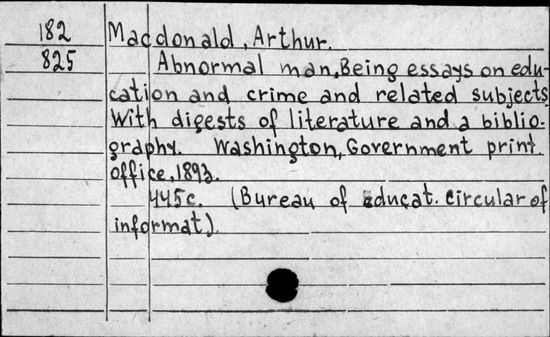 182 Macdonald, Arthur.
825 Abnormal man, Being essays on edu-
cation and crime and related subjects
With digests of literature and a biblio-
graphy. Washington, Government print.
office, 1893.
445c. (Bureau of educat. circular of
informat.)